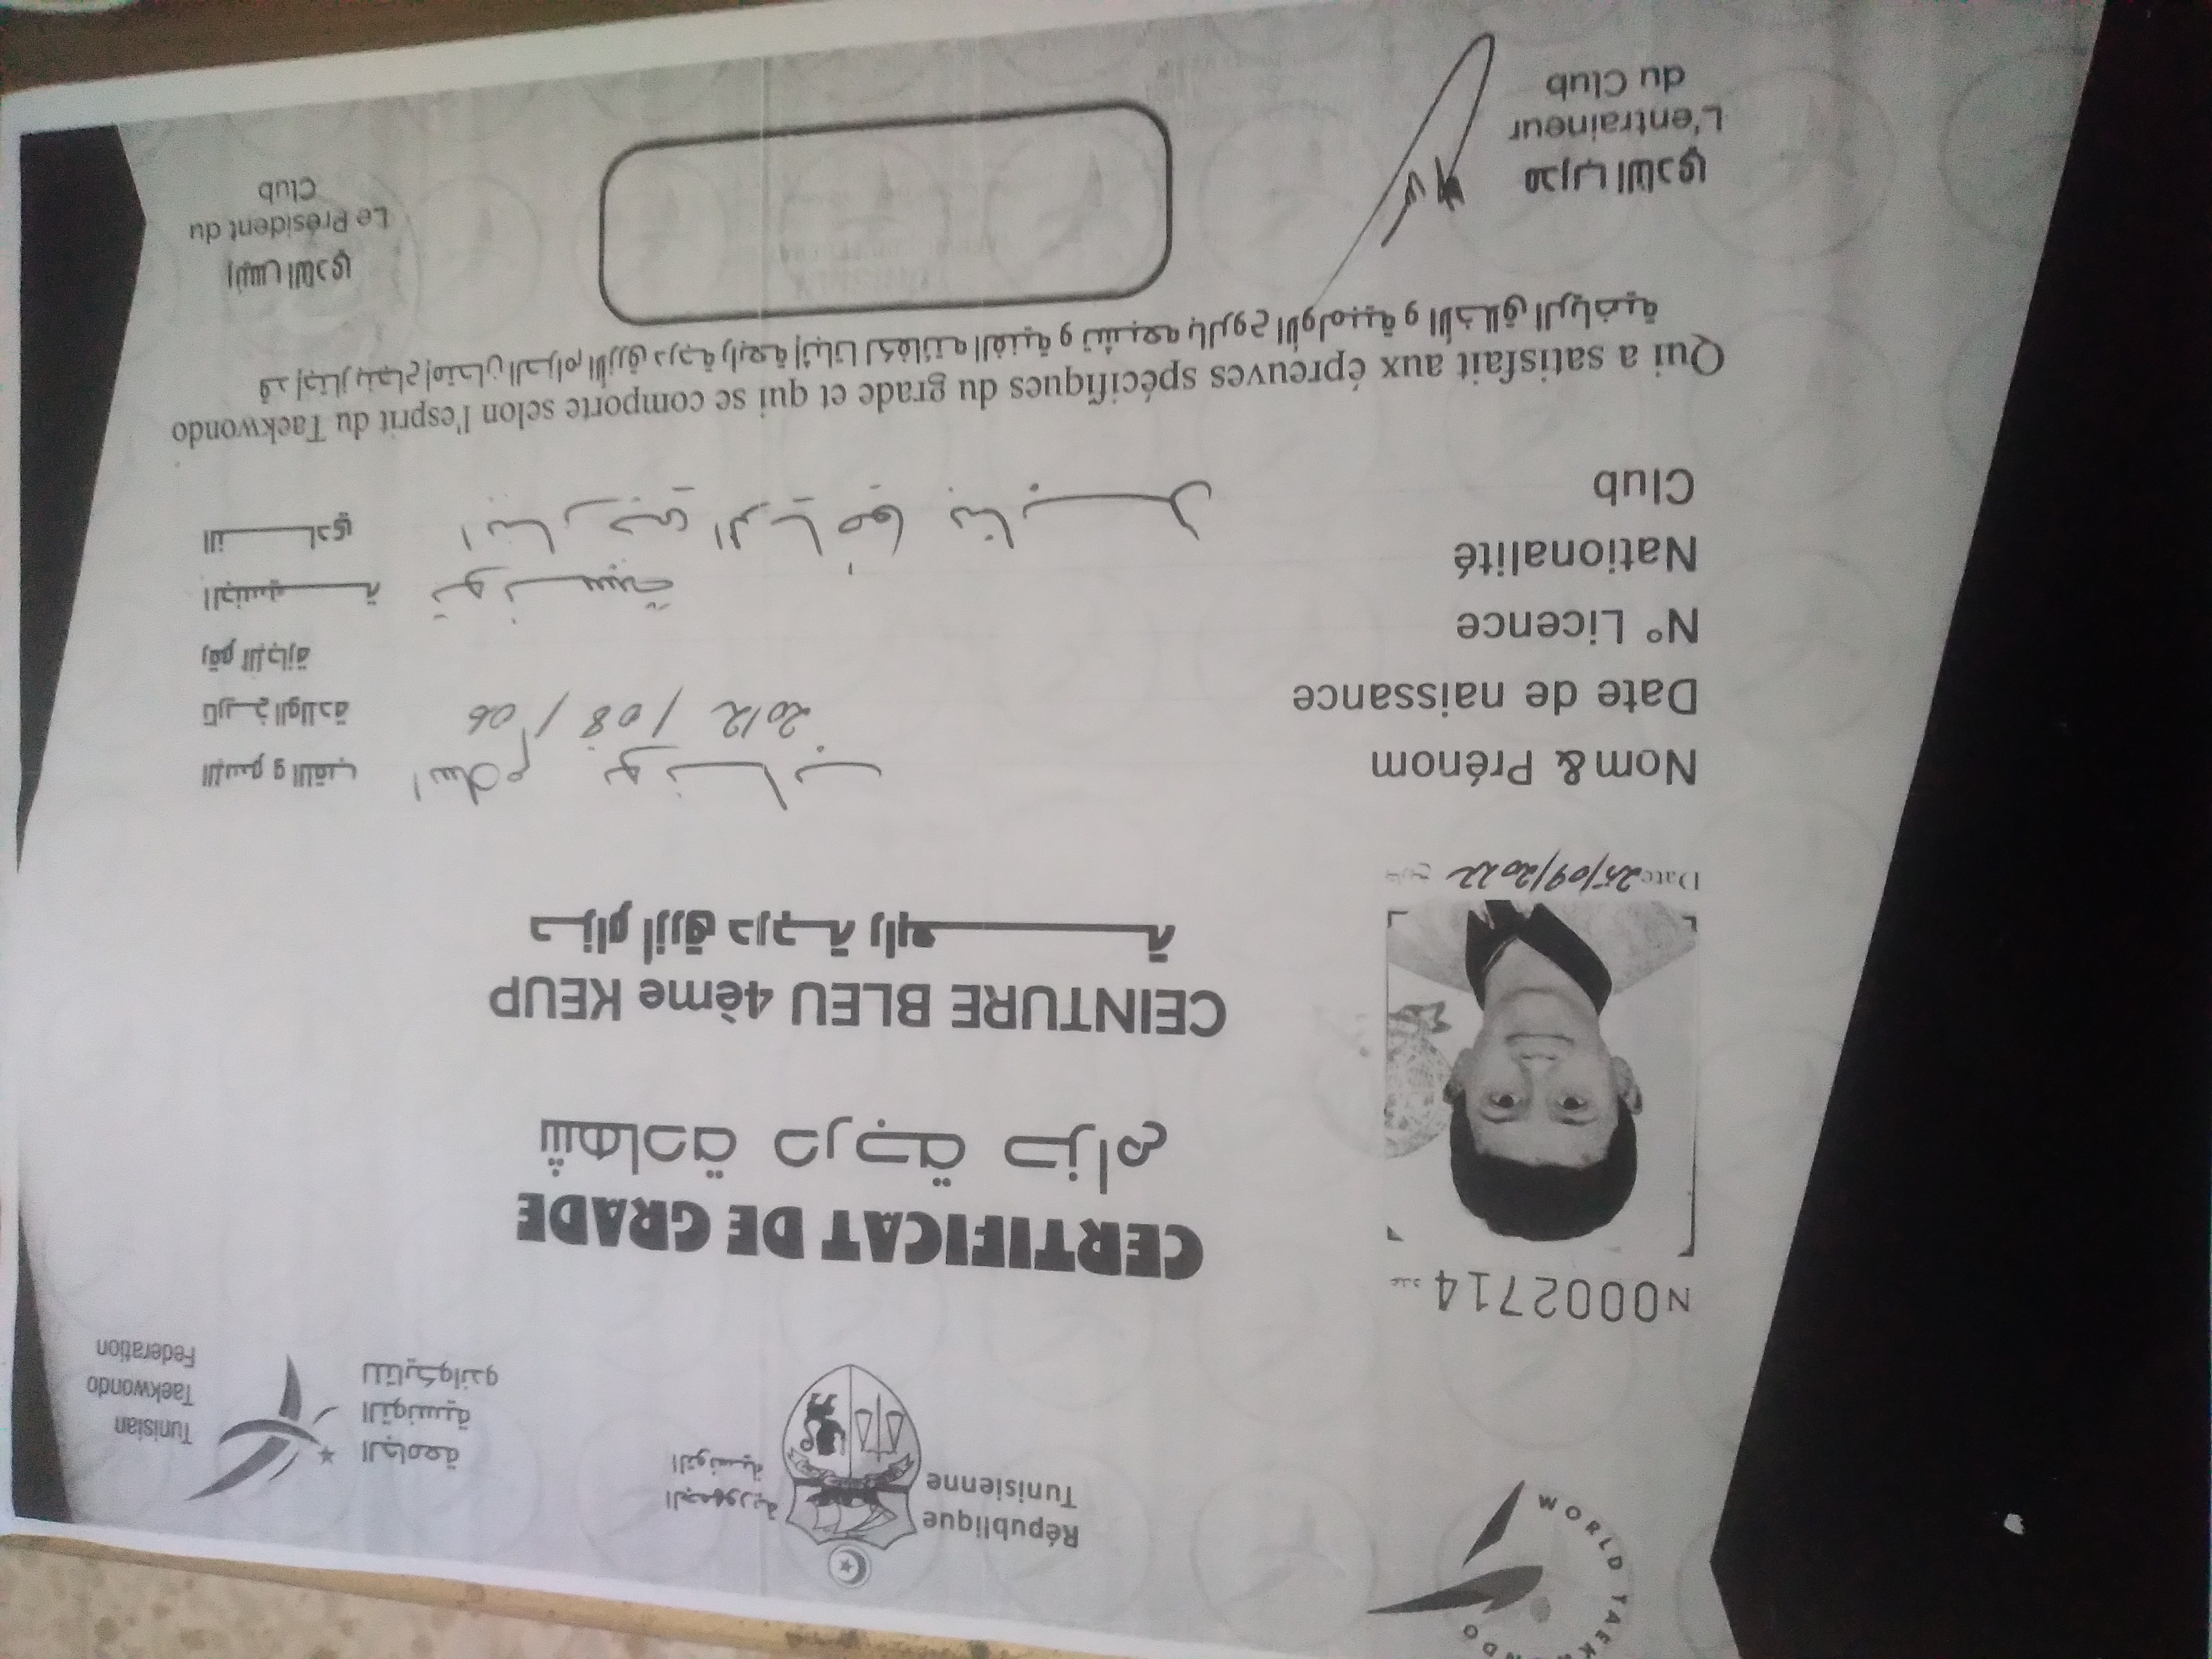 WORLD TAEK NDO
République
Tunisienne
الجمهورية
التونسية
الجامعة
التونسية
للتايكواندو
Tunisian
Taekwondo
Federation
N0002714 عدد
CERTIFICAT DE GRADE
شهادة درجة حزام
CEINTURE BLEU 4ème KEUP
حزام ازرق درجة رابعة
Date 25/09/2022
Nom & Prénom
اسلام
الإسم و اللقب
Date de naissance 2012/08/06 تاريخ الولادة
N° Licence رقم الإجازة
Nationalité تونسية الجنسية
Club
النادي
Qui a satisfait aux épreuves spécifiques du grade et qui se comporte selon l'esprit du Taekwondo
قد إجتاز بنجاح إمتحان الحزام الأزرق درجة رابعة إثباتا لكفائته الفنية و تشبعه بالروح الأولمبية و الأخلاق الرياضية
مدرب النادي
L'entraineur
du Club
رئيس النادي
Le Président du
Club